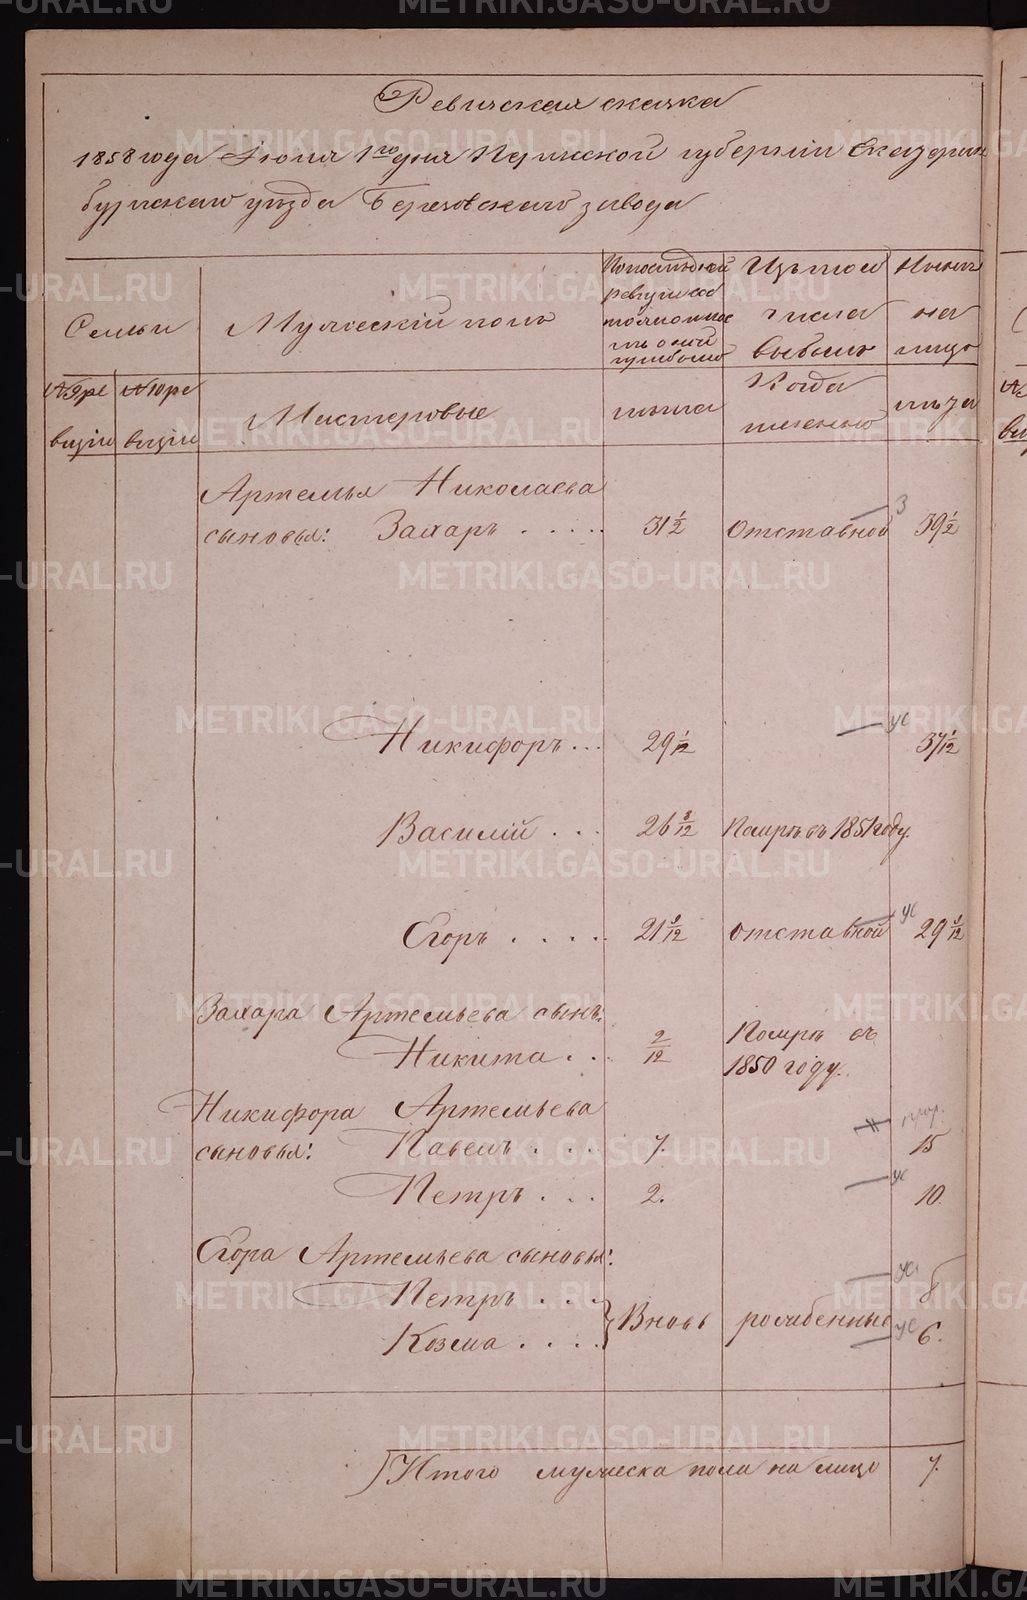 Ревижская скажка
1858 года Июня 1го дня Пермской губернии Екатерин
бургскаго уезда Березовскаго завода
Семьи
Мужескій полъ
По последней
ревизіи состояло и после оной прибыло
Изъ того
числа
выбыло
Ныне
на
лицо
№ 9 ре
визіи
№ 10 ре
визіи
Мастеровые
лета
Когда
именно
лета
Артемья Николаева
сыновья: Захаръ . . . . . 31 1/2 Отставной 3 39 1/2
Никифоръ . . . 29 1/12 ус 37 1/12
Василій . . . 26 8/12 Померъ въ 1851 году.
Егоръ . . . . . 21 1/12 Отставной ус 29 1/12
Захара Артемьева сынъ:
Никита . . . 2/12 Померъ въ
1850 году.
Никифора Артемьева
сыновья: Павелъ . . . . 7. 15
Петръ . . . 2. ус 10.
Егора Артемьева сыновья:
Петръ . . . ус 8
Козма . . . . } Вновь рожденные ус 6.
Итого мужеска пола на лицо 7.
METRIKI.GASO-URAL.RU